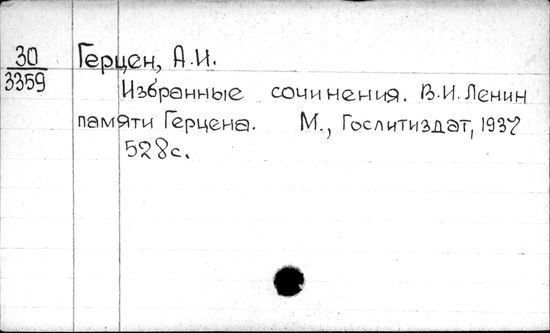 30 Герцен, А.И.
3359
Избранные сочинения. В.И. Ленин
памяти Герцена. М., Гослитиздат, 1937
528с.